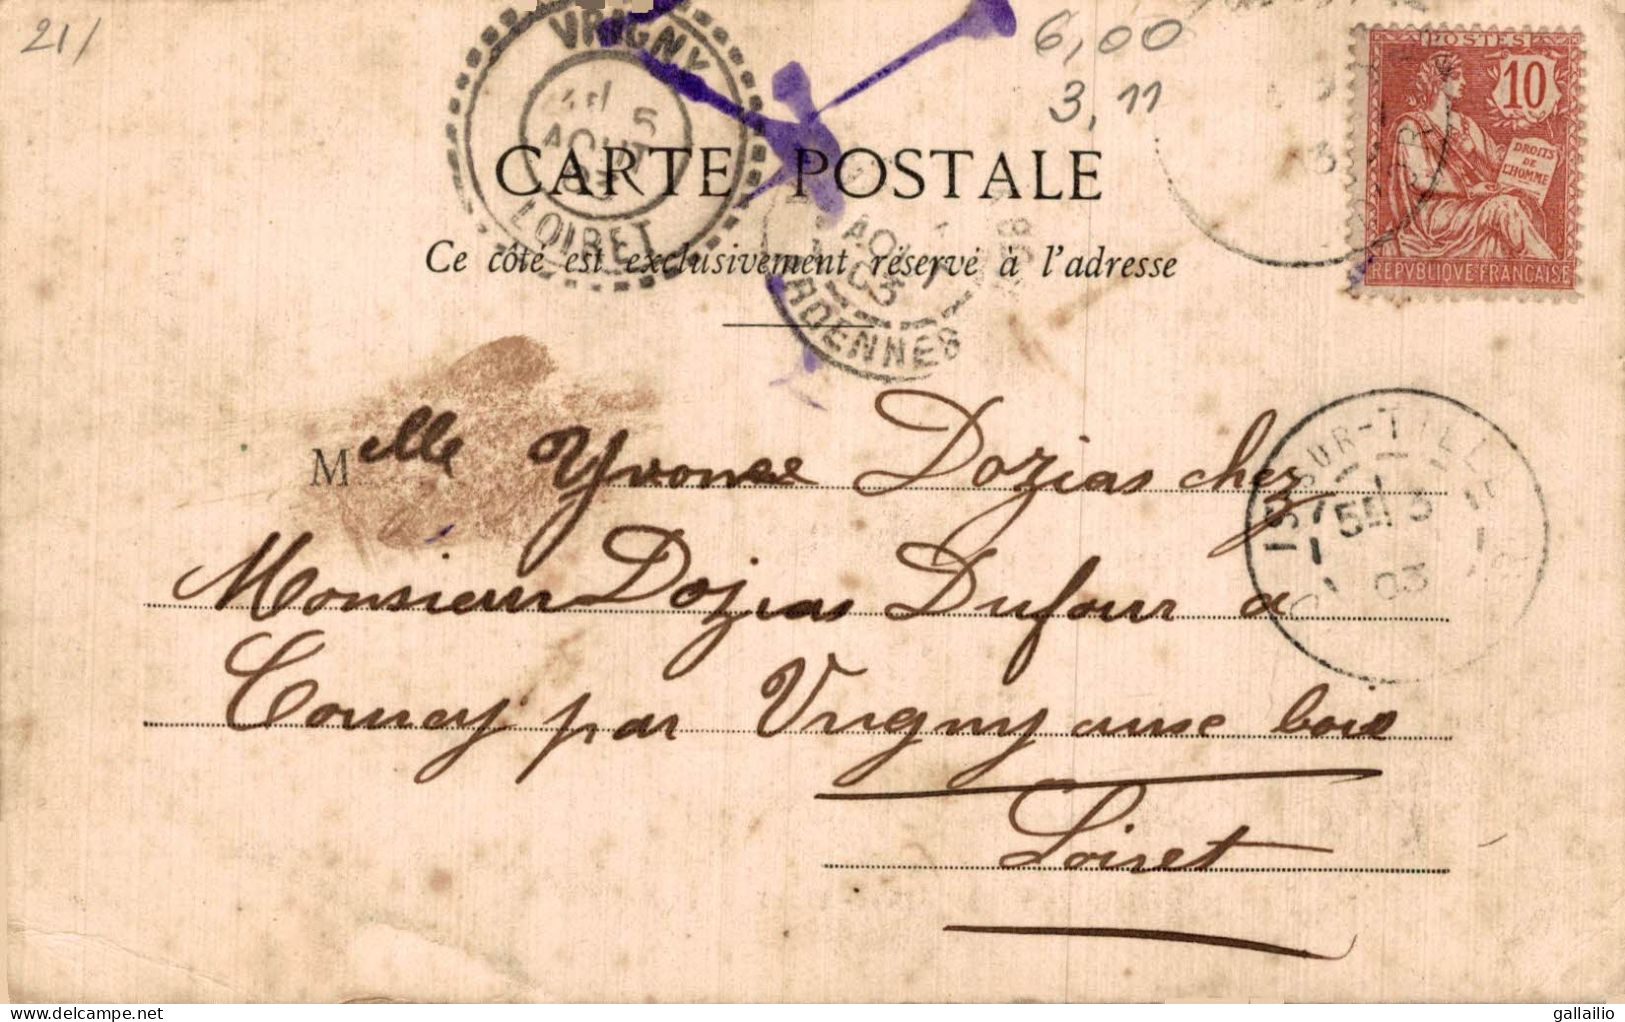 21/
6,00
3,11
VRIGNY
5
AOUT
03
LOIRET
POSTES
10
DROITS
DE
L'HOMME
REPVBLIQVE·FRANÇAISE
CARTE POSTALE
Ce côté est exclusivement réservé à l'adresse
AOU
03
ARDENNES
Melle Yvonne Dozias chez
Monsieur Dozias Dufour a
Courcy par Vrigny aux bois
Loiret
IS-SUR-TILLE
3
03
delcampe.net
gallailio